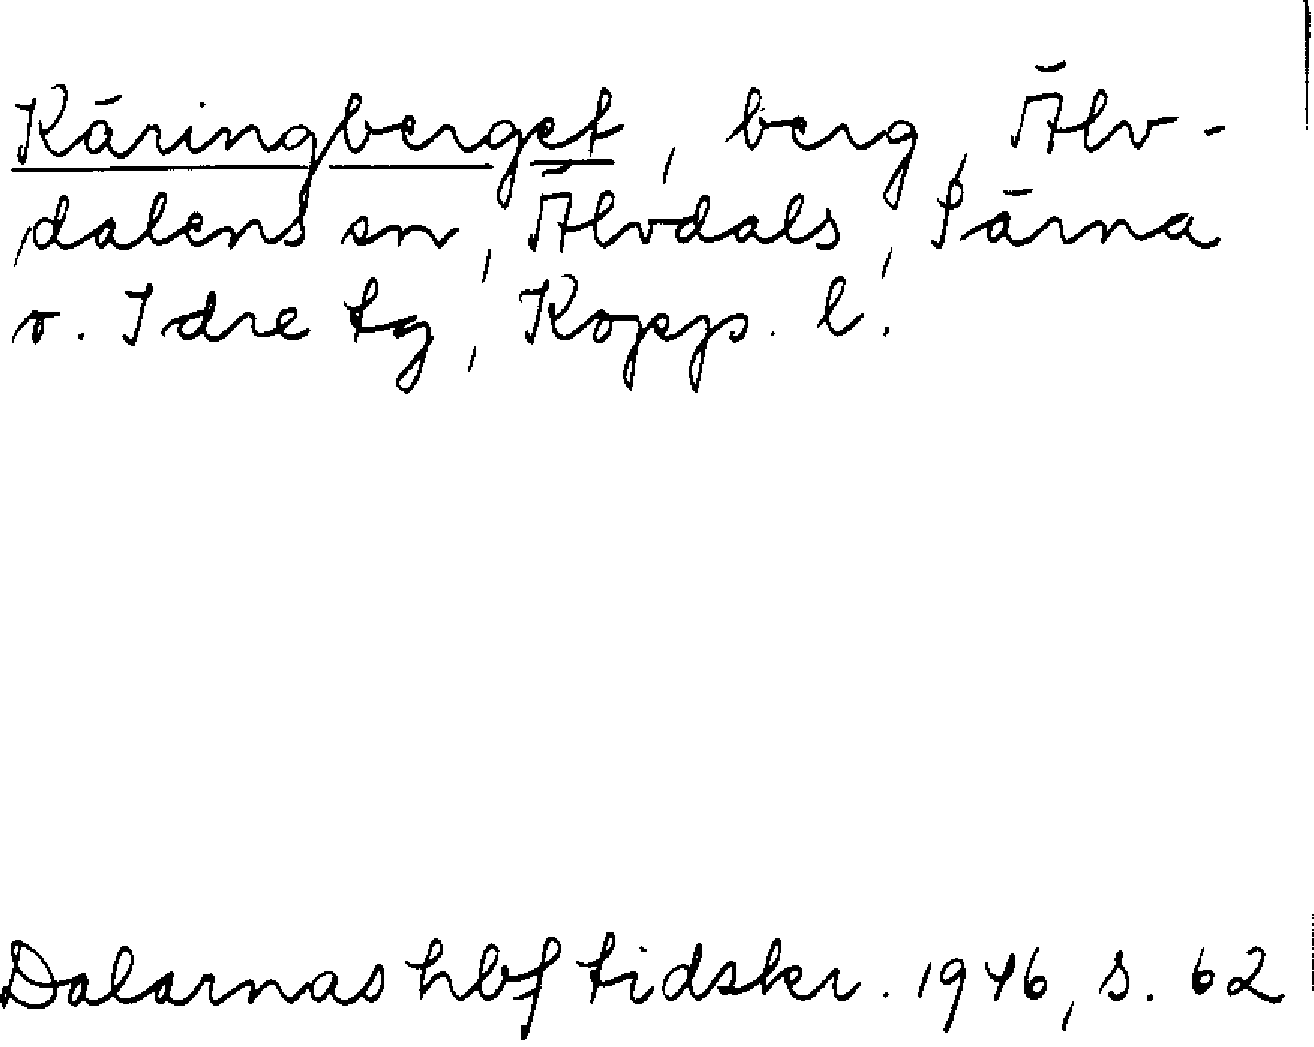 Käringberget, berg, Älv-
dalens sn, Älvdals, Särna
o. Idre tg, Kopp. l.
Dalarnas hbf tidskr. 1946, s. 62